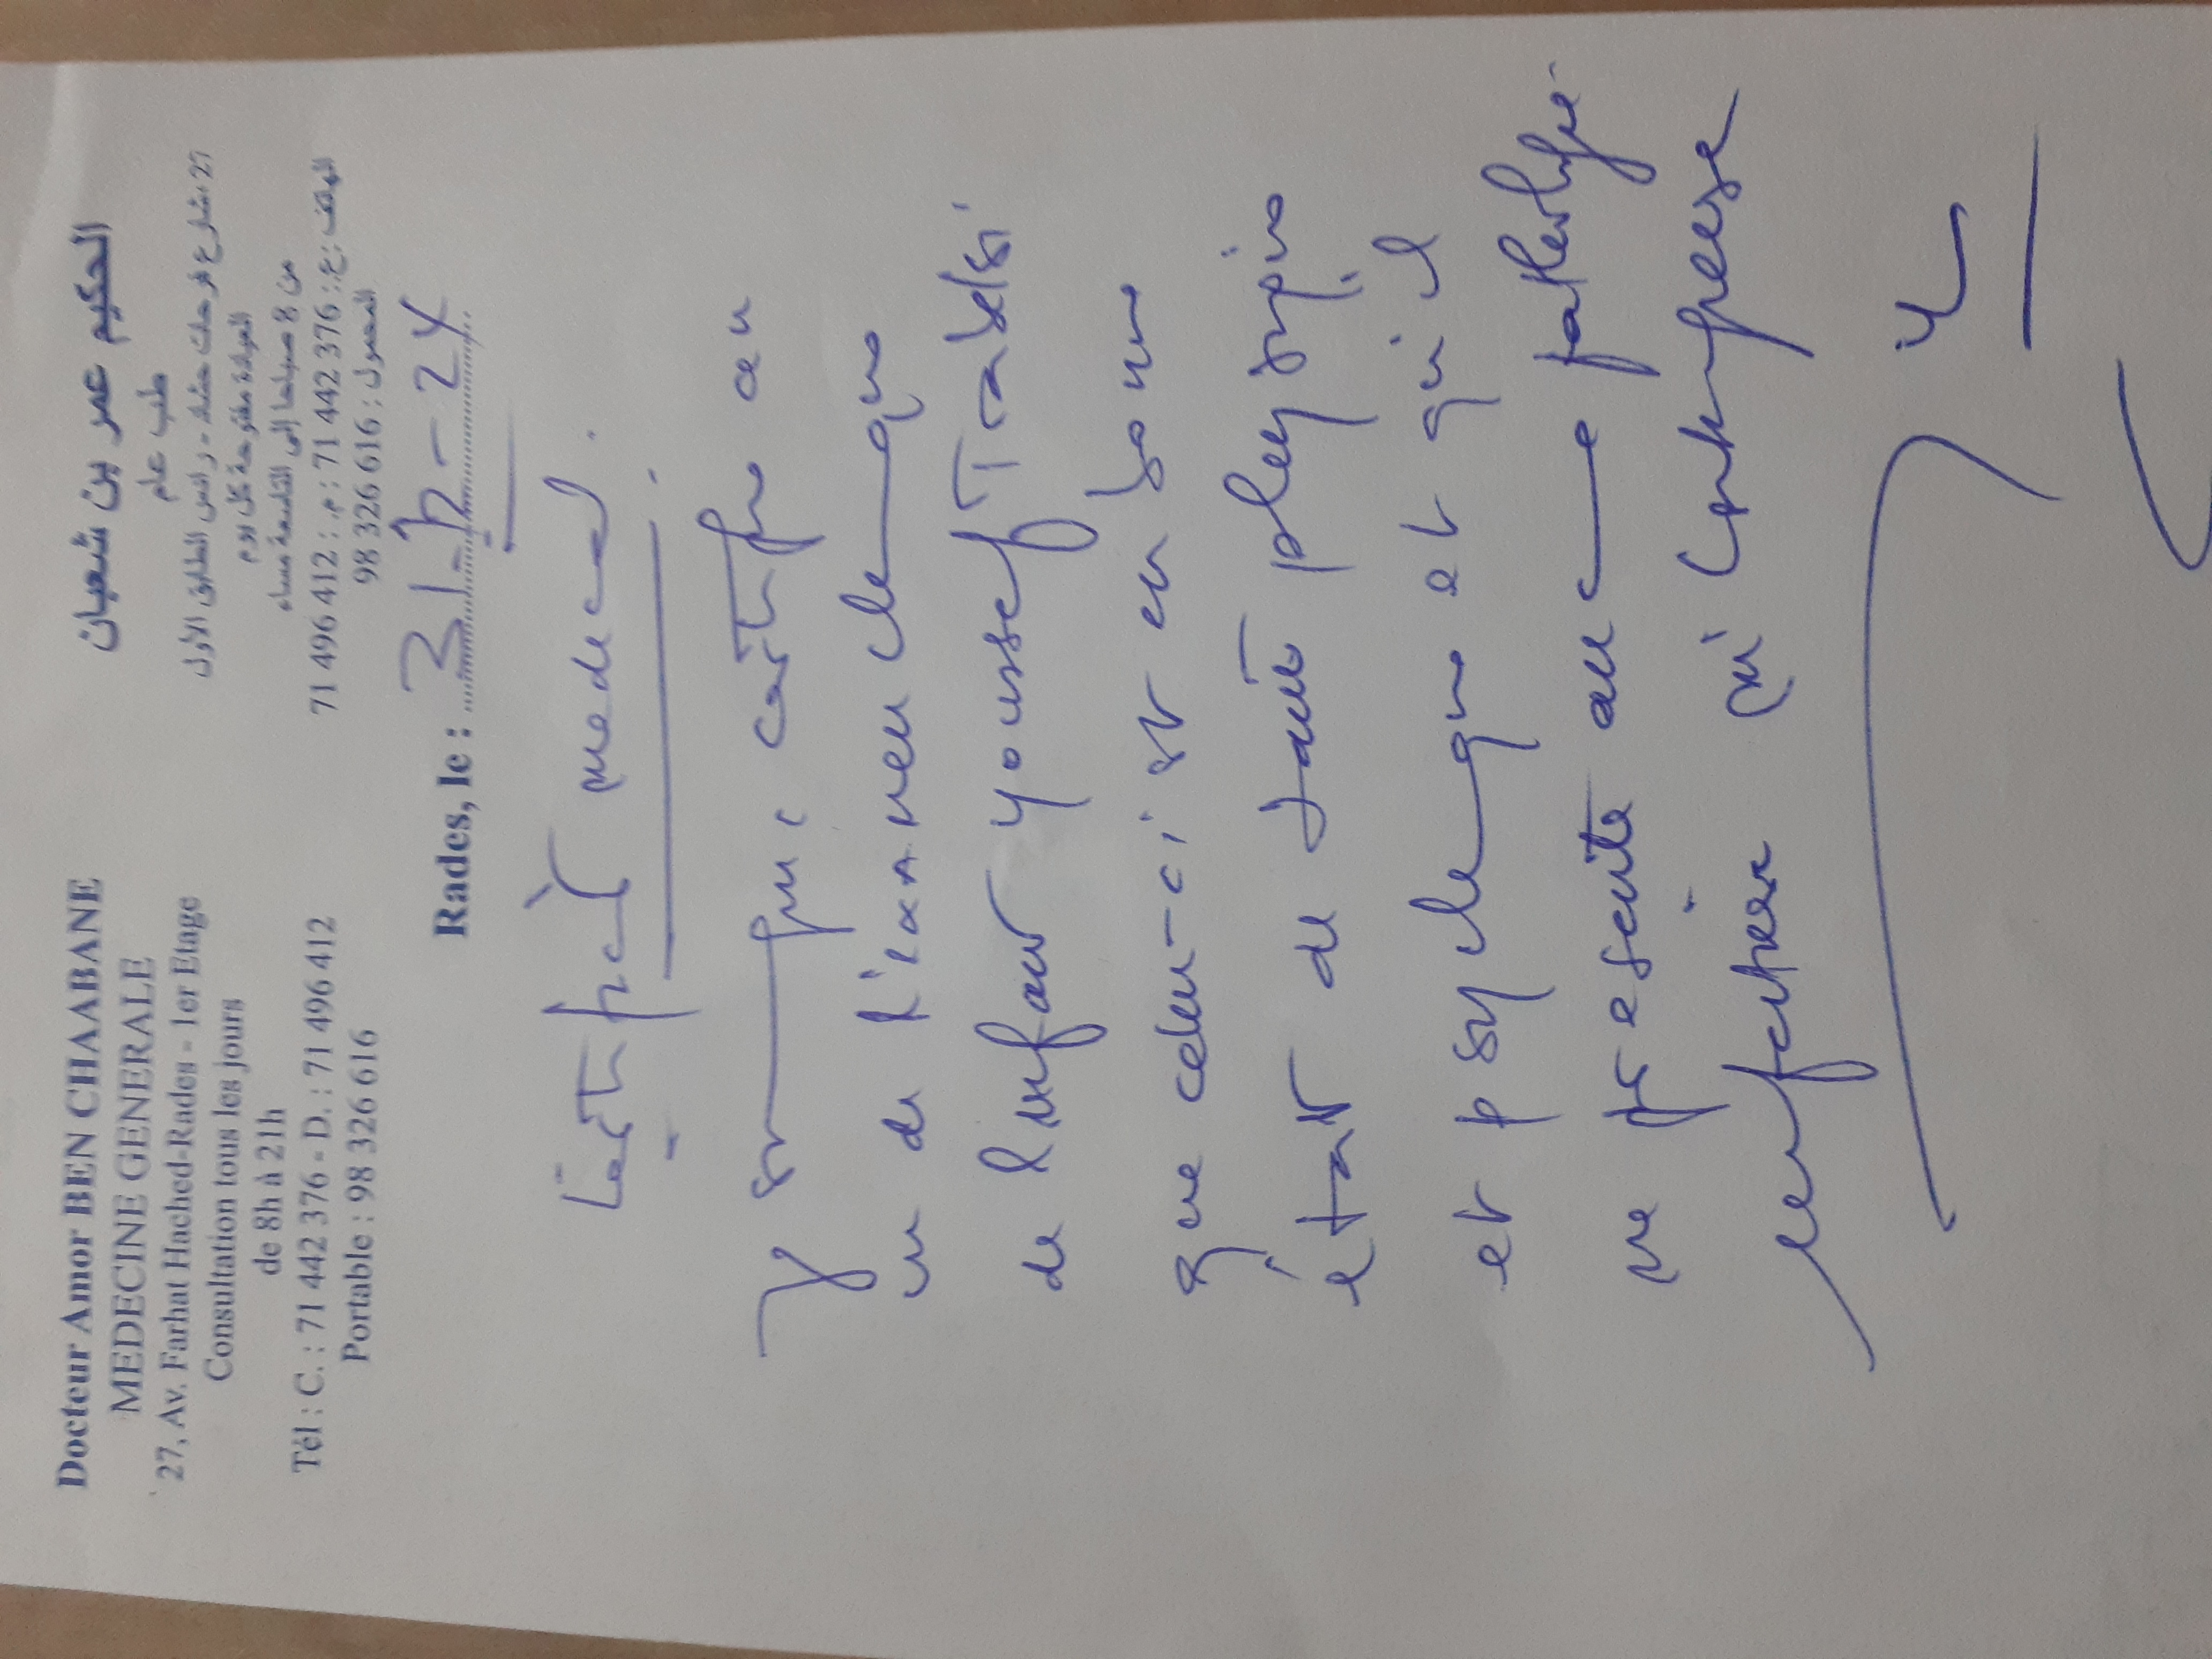 Docteur Amor BEN CHAABANE
MEDECINE GENERALE
27, Av. Farhat Hached-Rades - 1er Etage
Consultation tous les jours
de 8h à 21h
Tél : C. : 71 442 376 - D. : 71 496 412
Portable : 98 326 616
الحكيم عمر بن شعبان
طب عام
27 شارع فرحات حشاد - رادس الطابق الأول
العيادة مفتوحة كل يوم
من 8 صباحا إلى التاسعة مساء
الهاتف : ع : 71 442 376 : م : 71 496 412
المحمول : 98 326 616
Rades, le : 31-12-24
Certificat medical.
Je soussigné certifie au
vu de l'examen clinique
de l'enfant Youssef Trabelsi
que celui-ci est en bonne
état de santé physique
et psychique et qu'il
ne présente aucune pathologie
infectieuse ni contagieuse